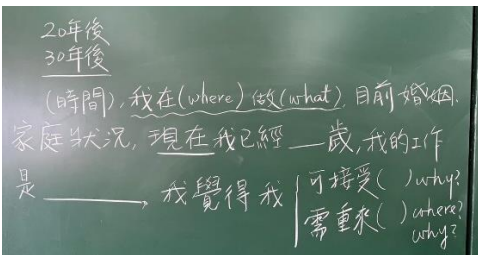 20年後
30年後
(時間),我在(where)做(what),目前婚姻、
家庭狀況,現在我已經___歲,我的工作
是________,我覺得我 可接受( )why?
需重來( )where?
why?